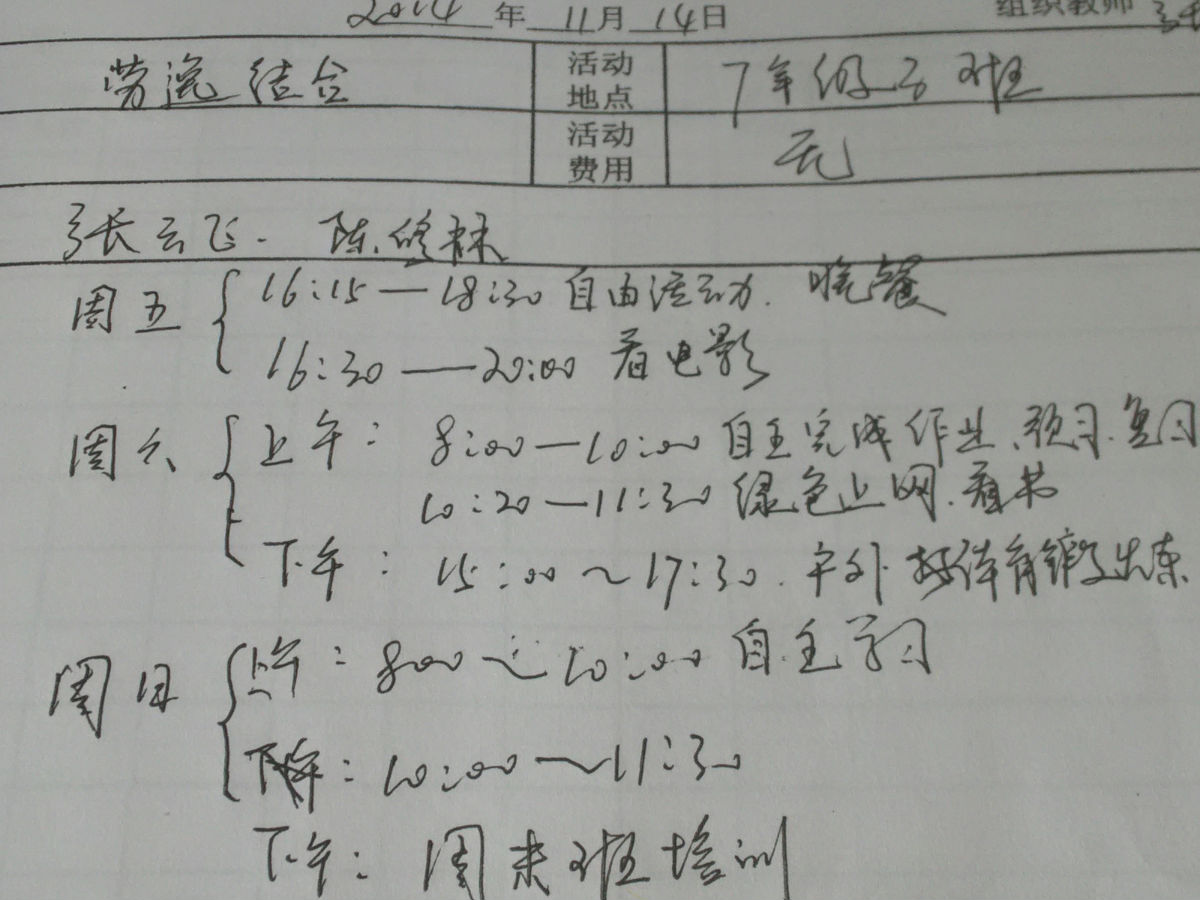 2014年 11月 14日 组织教师 张
劳逸结合 活动地点 7年级3班
活动费用 无
张云飞. 陈修林
周五 16:15—18:30 自由活动. 晚餐
16:30—20:00 看电影
周六 上午: 8:00—10:00 自主完成作业、预习.复习
10:20—11:30 绿色上网.看书
下午: 15:00~17:30. 户外 体育锻炼
周日 上午: 800~10:00 自主学习
下午: 10:00~11:30
下午: 周末班培训